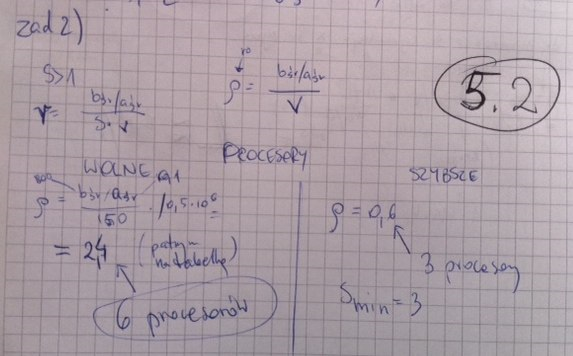 zad 2)
S>1
r = bśr/aśr / S·V
ro
ρ = bśr/aśr / V
5.2
PROCESORY
WOLNE
ρ = bśr/aśr / 150 · 10,5·10⁶
= 2,4 (patrzy na tabelkę)
6 procesorów
SZYBSZE
ρ = 0,6
3 procesory
Smin = 3